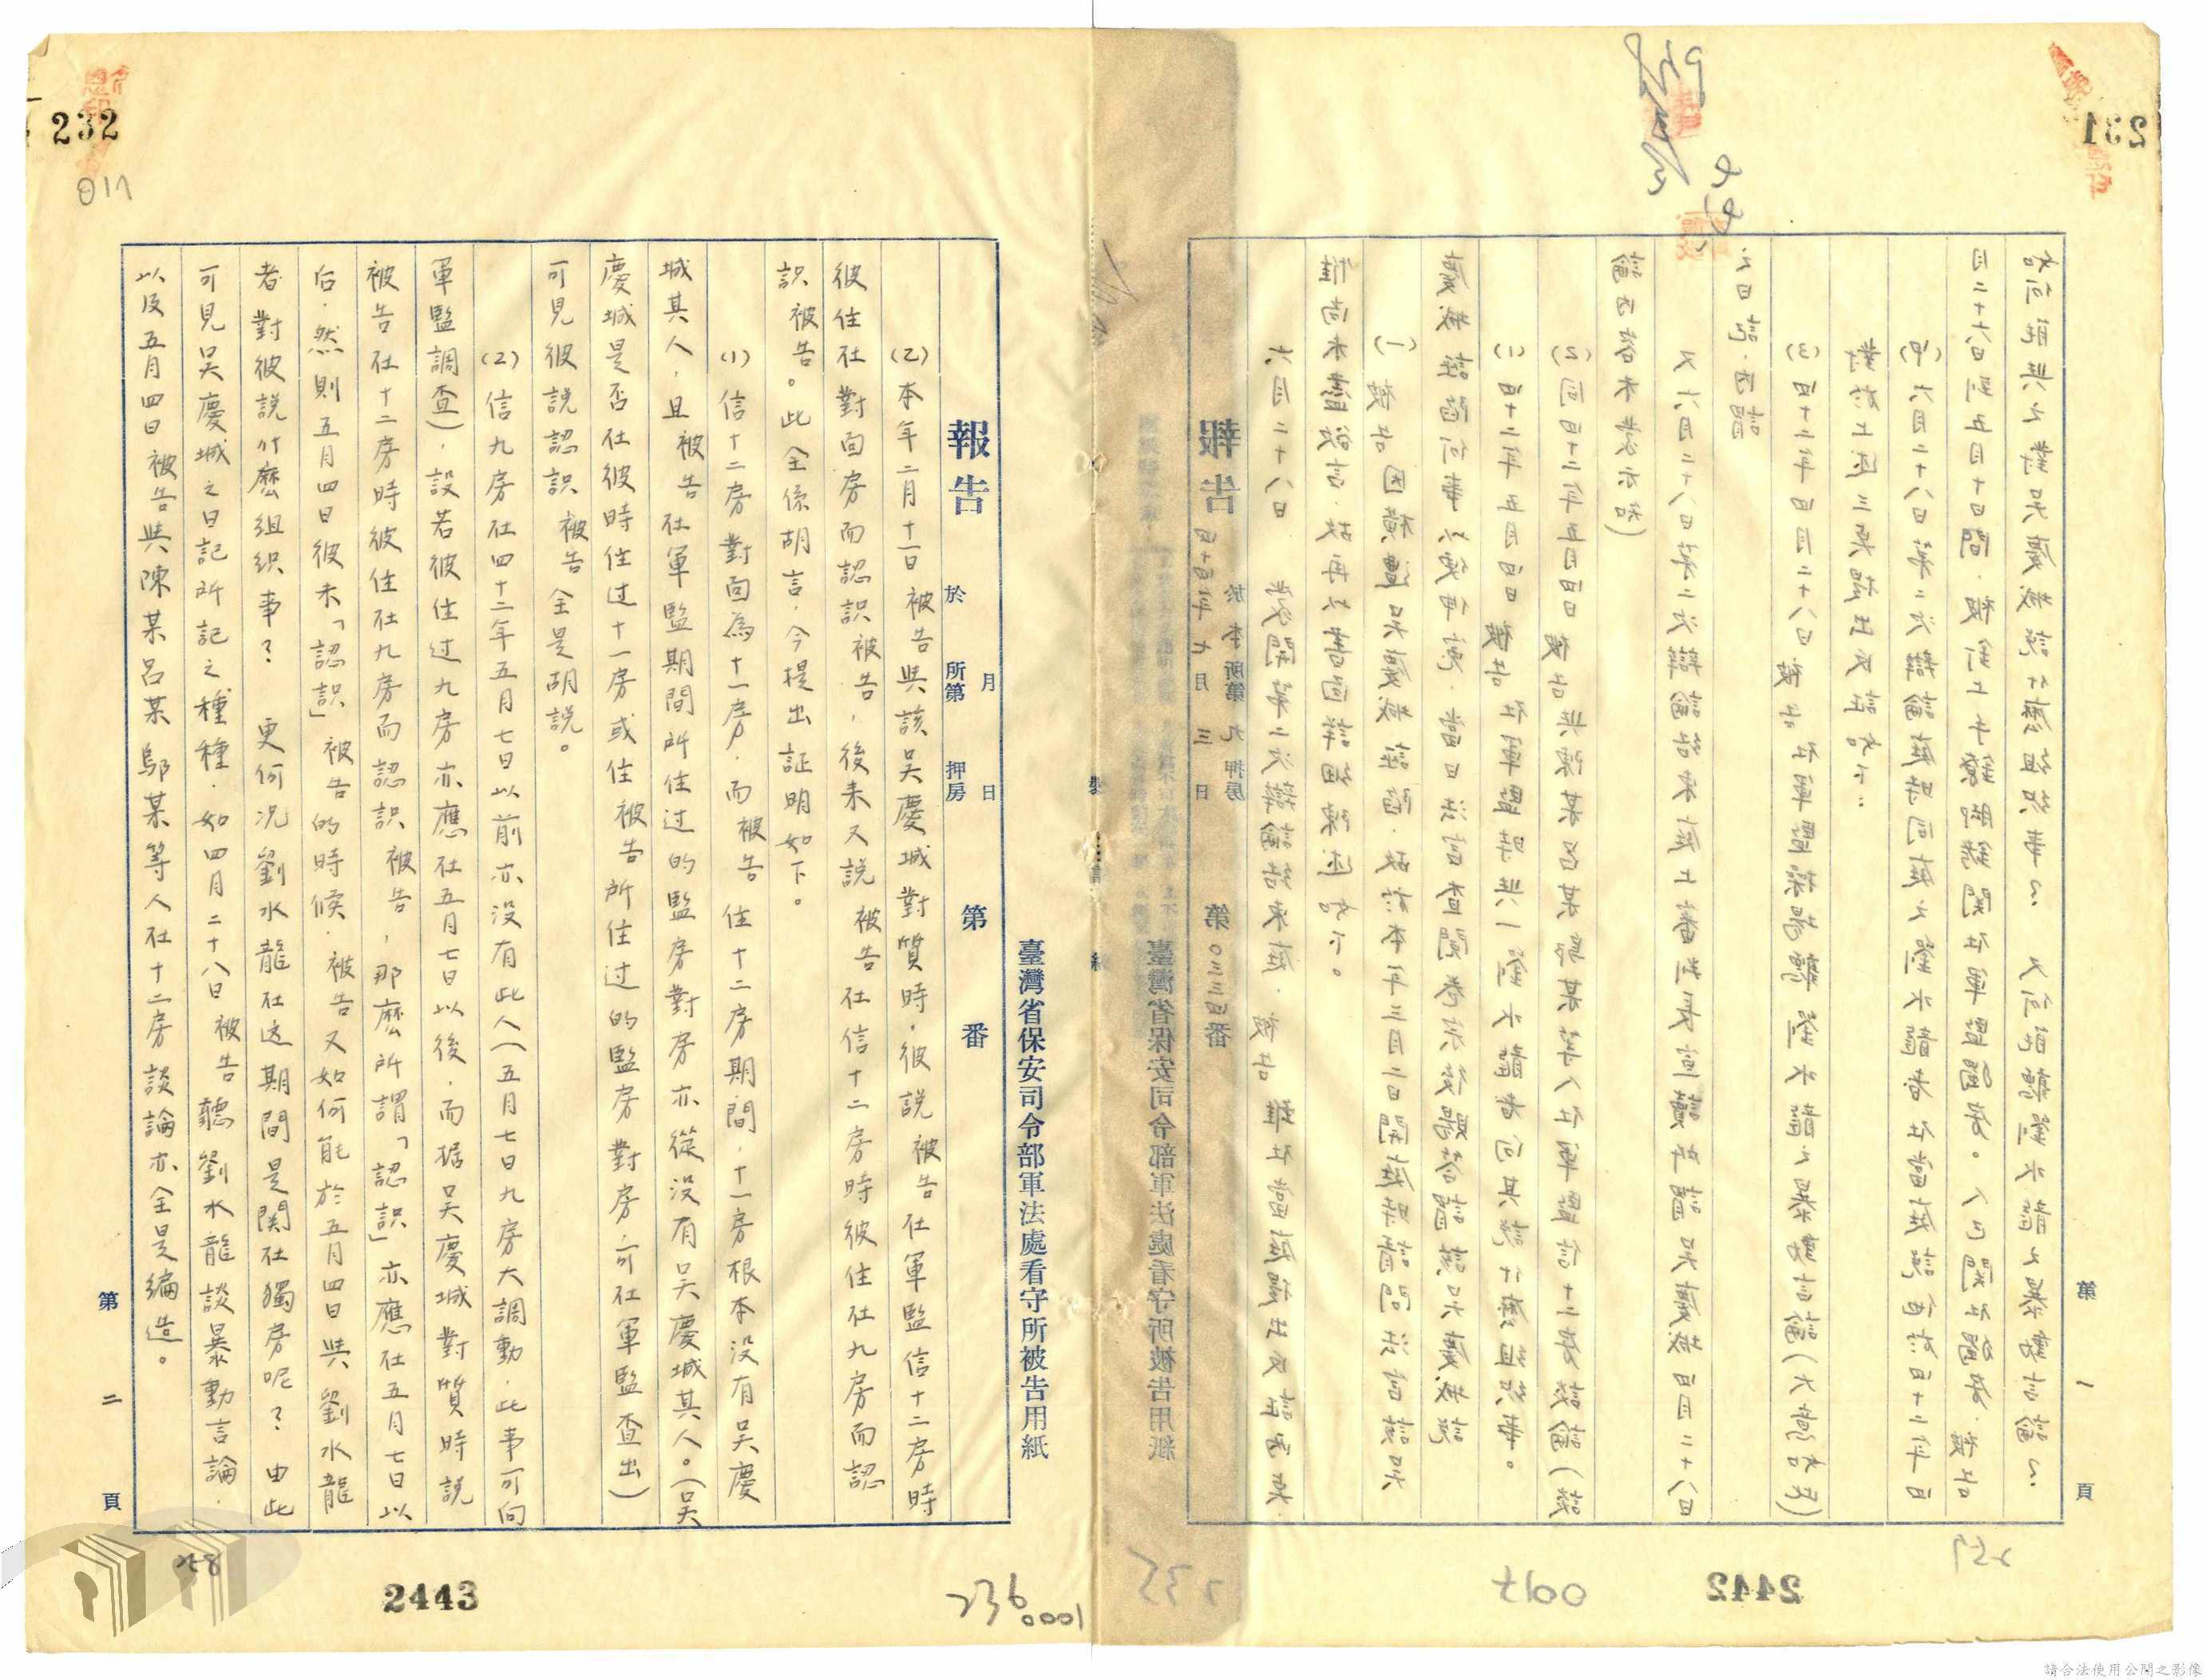 第一頁
231
臺灣省保安司令部軍法處看守所被告用紙
報告 四十四年七月三日 於本所第九押房 第〇三三四番
六月二十八日 蒙開第二次辯論結束庭.被告雖在當庭提出反証
惟尚未盡欲言.故再以書面詳細陳述如下。
(一)被告因橫遭吳慶城誣陷.故於本年三月二日開庭時請問法官該吳
慶城誣陷何事以便申寃.當日法官查閱卷宗後賜答謂該吳慶城說
(1)四十二年五月四日被告在軍監時與一劉水龍者向其說什麽組织事。
(2)同四十二年五月四日被告與陳某呂某鄔某等人在軍監信十二房談論(談
論內容未蒙示知)
又六月二十八日第二次辯論結束庭上審判長宣讀所謂吳慶城四月二十八日
之日記.內謂
(3)四十二年四月二十八日被告在軍監操場聽劉水龍之暴動言論(大意如此)
對於上述三点提出反証如下:
(甲)六月二十八日第二次辯論庭時同庭之劉水龍者在當庭說他於四十二年四
月二十六日到五月十日間.被釘上手鐐脚鐐関在軍監獨房。人已関在獨房.被告
如何能與之對吳慶城說什麽組织事?又何能聽劉水龍之暴動言論?
2442
235
259
232
臺灣省保安司令部軍法處看守所被告用紙
報告 月 日 於 所第 押房 第 番
(乙)本年二月十一日被告與該吳慶城對質時,彼說被告在軍監信十二房時
彼住在對面房而認識被告,後來又說被告在信十二房時彼住在九房而認
識被告。此全係胡言,今提出証明如下。
(1)信十二房對面為十一房,而被告住十二房期間,十一房根本沒有吳慶
城其人,且被告在軍監期間所住过的監房對房亦從沒有吳慶城其人。(吳
慶城是否在彼時住过十一房或住被告所住过的監房對房,可在軍監查出)
可見彼說認識被告全是胡說。
(2)信九房在四十二年五月七日以前亦没有此人(五月七日九房大調動.此事可向
軍監調查),設若彼住过九房亦應在五月七日以後,而据吳慶城對質時說
被告在十二房時彼住在九房而認識被告,那麽所謂「認識」亦應在五月七日以
后.然則五月四日彼未「認識」被告的時候.被告又如何能於五月四日與劉水龍
者對彼說什麽組织事?更何况劉水龍在这期間是関在獨房呢?由此
可見吳慶城之日記所記之種種.如四月二十八日被告聽劉水龍談暴動言論.
以及五月四日被告與陳某呂某鄔某等人在十二房談論亦全是編造。
第二頁
2443
236
0001
258
請合法使用公開之影像